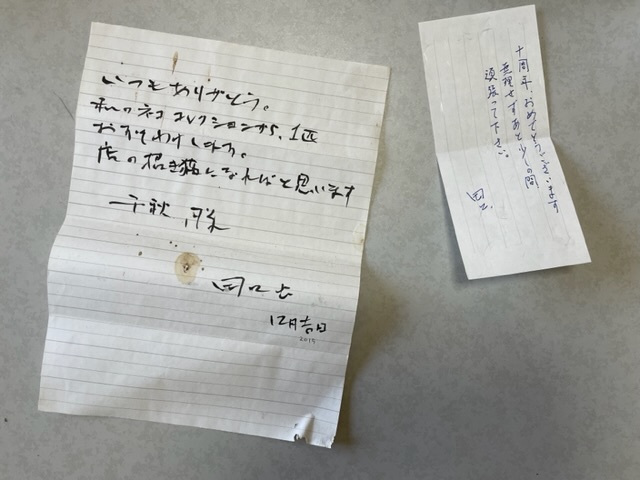 いつもありがとう。
私のネコ コレクションから、1匹
おすそわけします。
店の招き猫になればと思います
千秋
12月吉日
2015
十周年、おめでとうございます
無理せずあと少しの間
頑張って下さい。